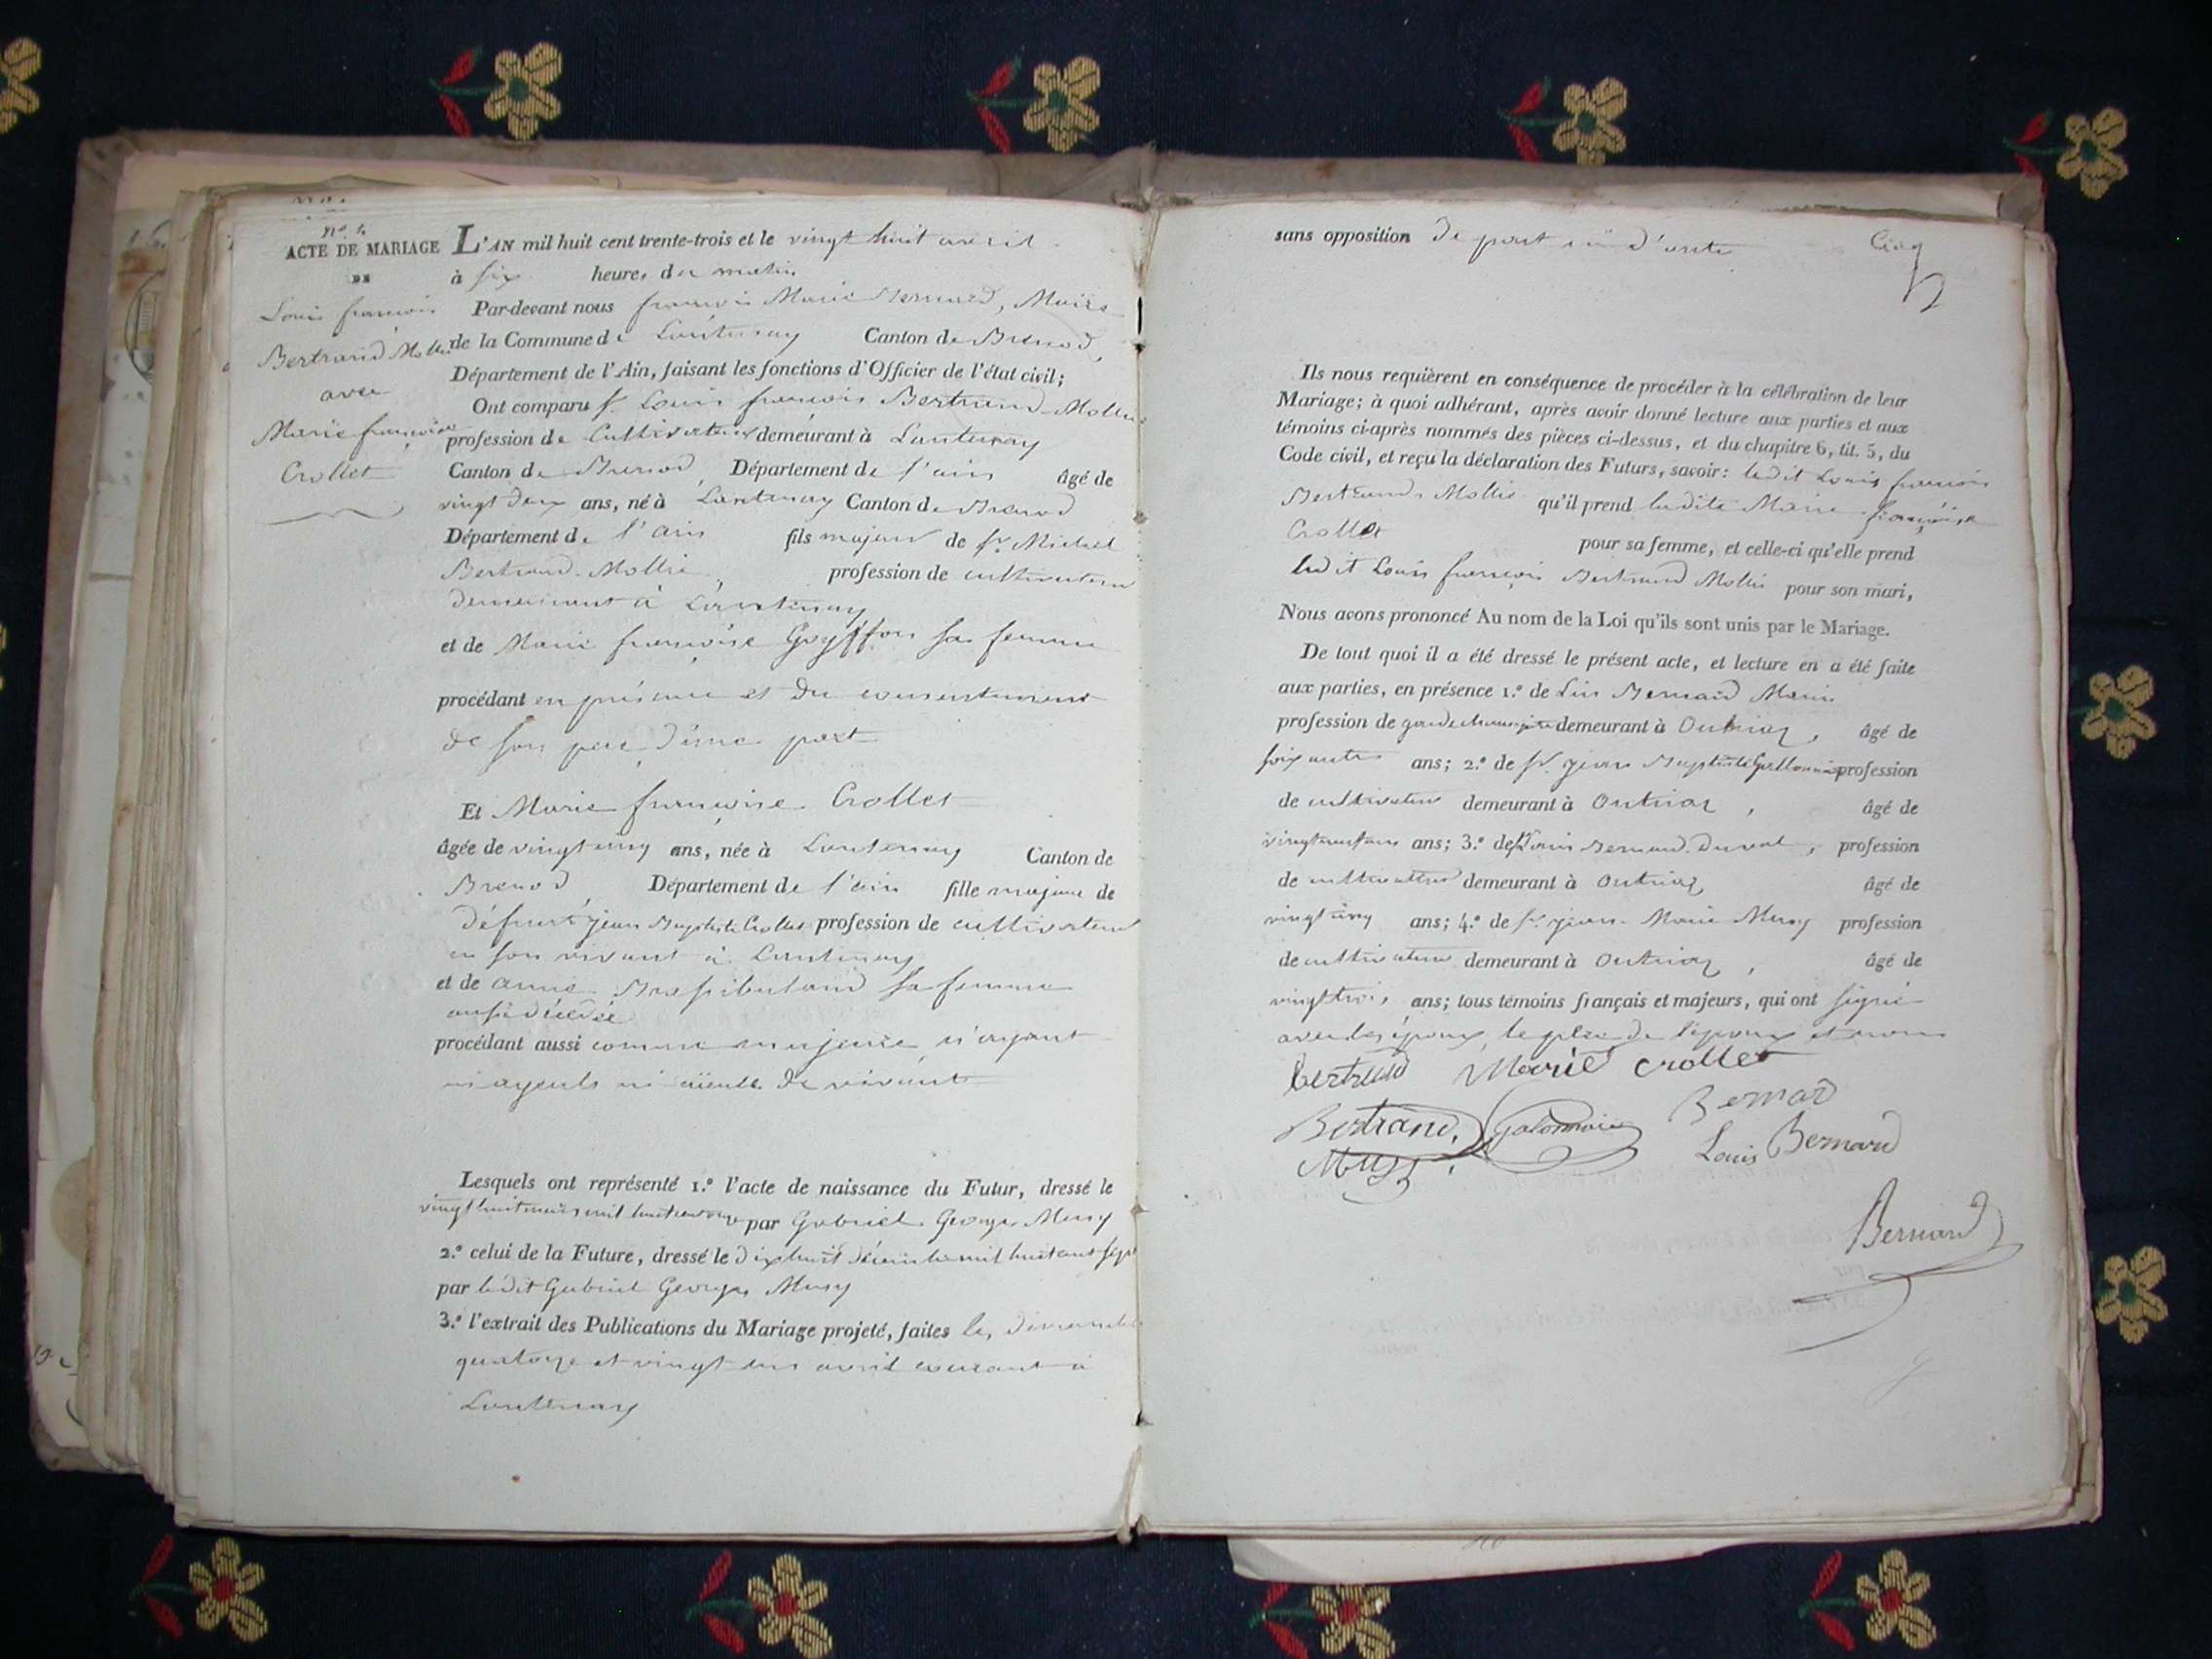 n.º 4.
ACTE DE MARIAGE
DE
Louis françois
Bertrand Mollie
avec
Marie françoise
Crollet
L'AN mil huit cent trente-trois et le vingt huit avril
à six heures du matin
Par-devant nous françois Marie Bernard, Maire
de la Commune de Lantenay Canton de Brenod,
Département de l'Ain, faisant les fonctions d'Officier de l'état civil;
Ont comparu Sr. Louis françois Bertrand-Mollie
profession de Cultivateur demeurant à Lantenay
Canton de Brenod, Département de l'ain âgé de
vingt deux ans, né à Lantenay Canton de Brenod
Département de l'ain fils majeur de Sr. Michel
Bertrand-Mollie, profession de cultivateur
demeurant à Lantenay
et de Marie françoise Goyffon sa femme
procédant en présence et du consentement
de son père d'une part
Et Marie françoise Crollet
âgée de vingt cinq ans, née à Lantenay Canton de
Brenod, Département de l'ain fille majeure de
défunt jean Baptiste Crollet profession de cultivateur
en son vivant à Lantenay
et de anne sa femme
aussi décédée
procédant aussi comme majeure n'ayant
ni ayeuls ni aïeules de vivants
Lesquels ont représenté 1.º l'acte de naissance du Futur, dressé le
vingt huit mars mil huit cent onze par Gabriel Georges Musy
2.º celui de la Future, dressé le dix huit décembre mil huit cent sept
par ledit Gabriel Georges Musy
3.º l'extrait des Publications du Mariage projeté, faites les dimanches
quatorze et vingt un avril courant à
Lantenay
sans opposition de part ni d'autre
Cinq
5
Ils nous requièrent en conséquence de procéder à la célébration de leur
Mariage; à quoi adhérant, après avoir donné lecture aux parties et aux
témoins ci-après nommés des pièces ci-dessus, et du chapitre 6, tit. 5, du
Code civil, et reçu la déclaration des Futurs, savoir: ledit Louis françois
Bertrand-Mollie qu'il prend ladite Marie françoise
Crollet pour sa femme, et celle-ci qu'elle prend
ledit Louis françois Bertrand Mollie pour son mari,
Nous avons prononcé Au nom de la Loi qu'ils sont unis par le Mariage.
De tout quoi il a été dressé le présent acte, et lecture en a été faite
aux parties, en présence 1.º de Bernard Marin
profession de garde champêtre demeurant à Outriaz, âgé de
soixante ans; 2.º de Sr. jean Baptiste profession
de cultivateur demeurant à Outriaz, âgé de
ans; 3.º de Sr. Louis Bernard-Duval, profession
de cultivateur demeurant à Outriaz, âgé de
vingt cinq ans; 4.º de Sr. jean-Marie Musy profession
de cultivateur demeurant à Outriaz, âgé de
vingt trois ans; tous témoins français et majeurs, qui ont signé
avec les époux, le père de l'époux et nous
bertrand Marie crollet
Bertrand. Galonnaire Bernard
Musy. Louis Bernard
Bernard